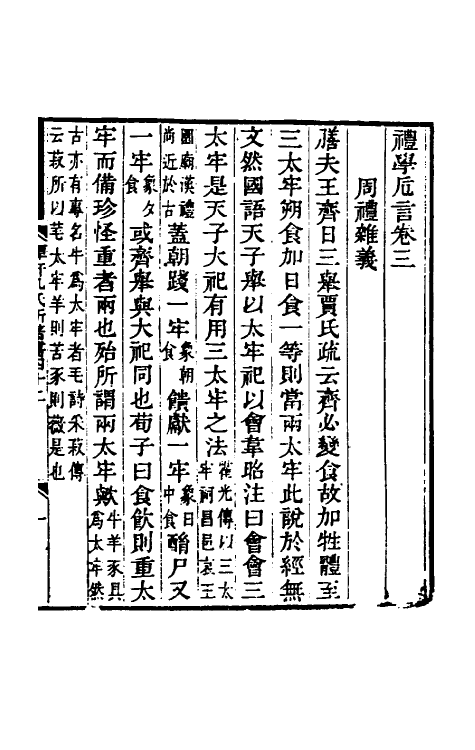 禮學卮言卷三
周禮雜義
膳夫王齊日三舉賈氏疏云齊必變食故加牲體至
三太牢朔食加日食一等則當兩太牢此說於經無
文然國語天子舉以太牢祀以會韋昭注曰會會三
太牢是天子大祀有用三太牢之法霍光傳以三太牢祠昌邑哀王
園廟漢禮尚近於古蓋朝踐一牢象朝食饋獻一牢象日中食酳尸又
一牢象夕食或齊舉與大祀同也荀子曰食飲則重太
牢而備珍怪重者兩也殆所謂兩太牢歟牛羊豕具爲太牢然
古亦有專名牛爲太牢者毛詩采菽傳
云菽所以芼太牢羊則苦豕則薇是也